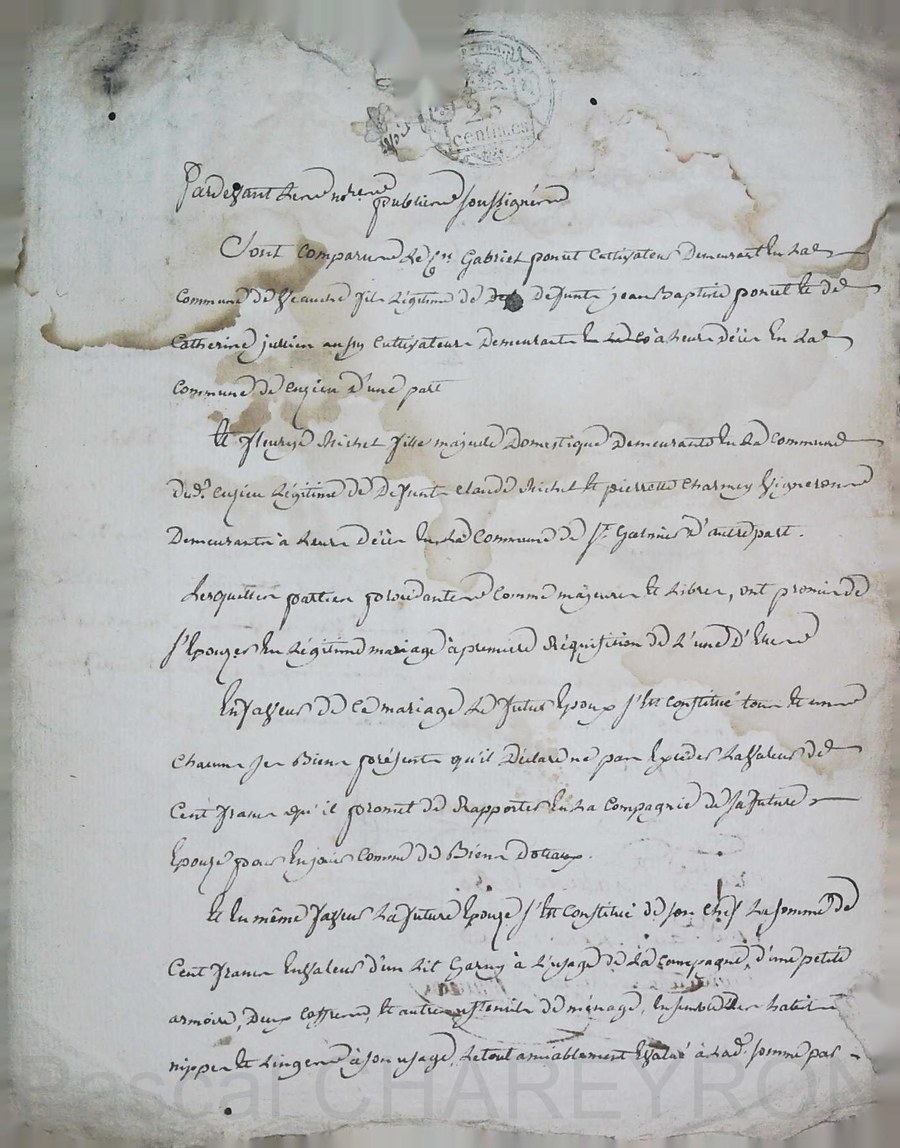 25
centimes
Pardevant Les notres publics soussignés
Sont comparus Le Cn Gabriel ponet Cultivateur Demeurant En La
Commune de Veauche fils Légitime de Defunts jean Baptiste ponet Et de
Catherine jullien aussi Cultivateurs Demeurants à Leurs décès En La
Commune de Cuzieu d'une part
Et fleurye Michel fille majeure Domestique Demeurante En La Commune
dud. Cuzieu Légitime de Defunts Claude Michel Et pierrette Charmey Vignerons
Demeurants à Leurs décès En La Commune de St. Galmier d'autre part.
Lesquelles parties procédantes Comme majeures Et Libres, ont promis de
s'Epouzer En Légitime mariage à première Réquisition de L'une d'Elles
En faveur de Ce mariage Le futur Epoux s'Est Constitué tous Et uns
Chacuns ses Biens présents qu'il Déclare ne pas Excéder La valeur de
Cent francs qu'il promet de Rapporter En La Compagnie de sa future
Epouze pour En jouir Comme de Biens dotaux.
Et En même faveur La future Epouze s'Est Constitué de son Chef La somme de
Cent francs En valeur d'un Lit Garny à L'usage de La Campagne, d'une petite
armoire, deux Coffres, Et autres ustensils de ménage, Ensemble Ses habits
nippes Et Linges à Son usage, Le tout amiablement Evalué à Lad. somme par
Pascal CHAREYRON